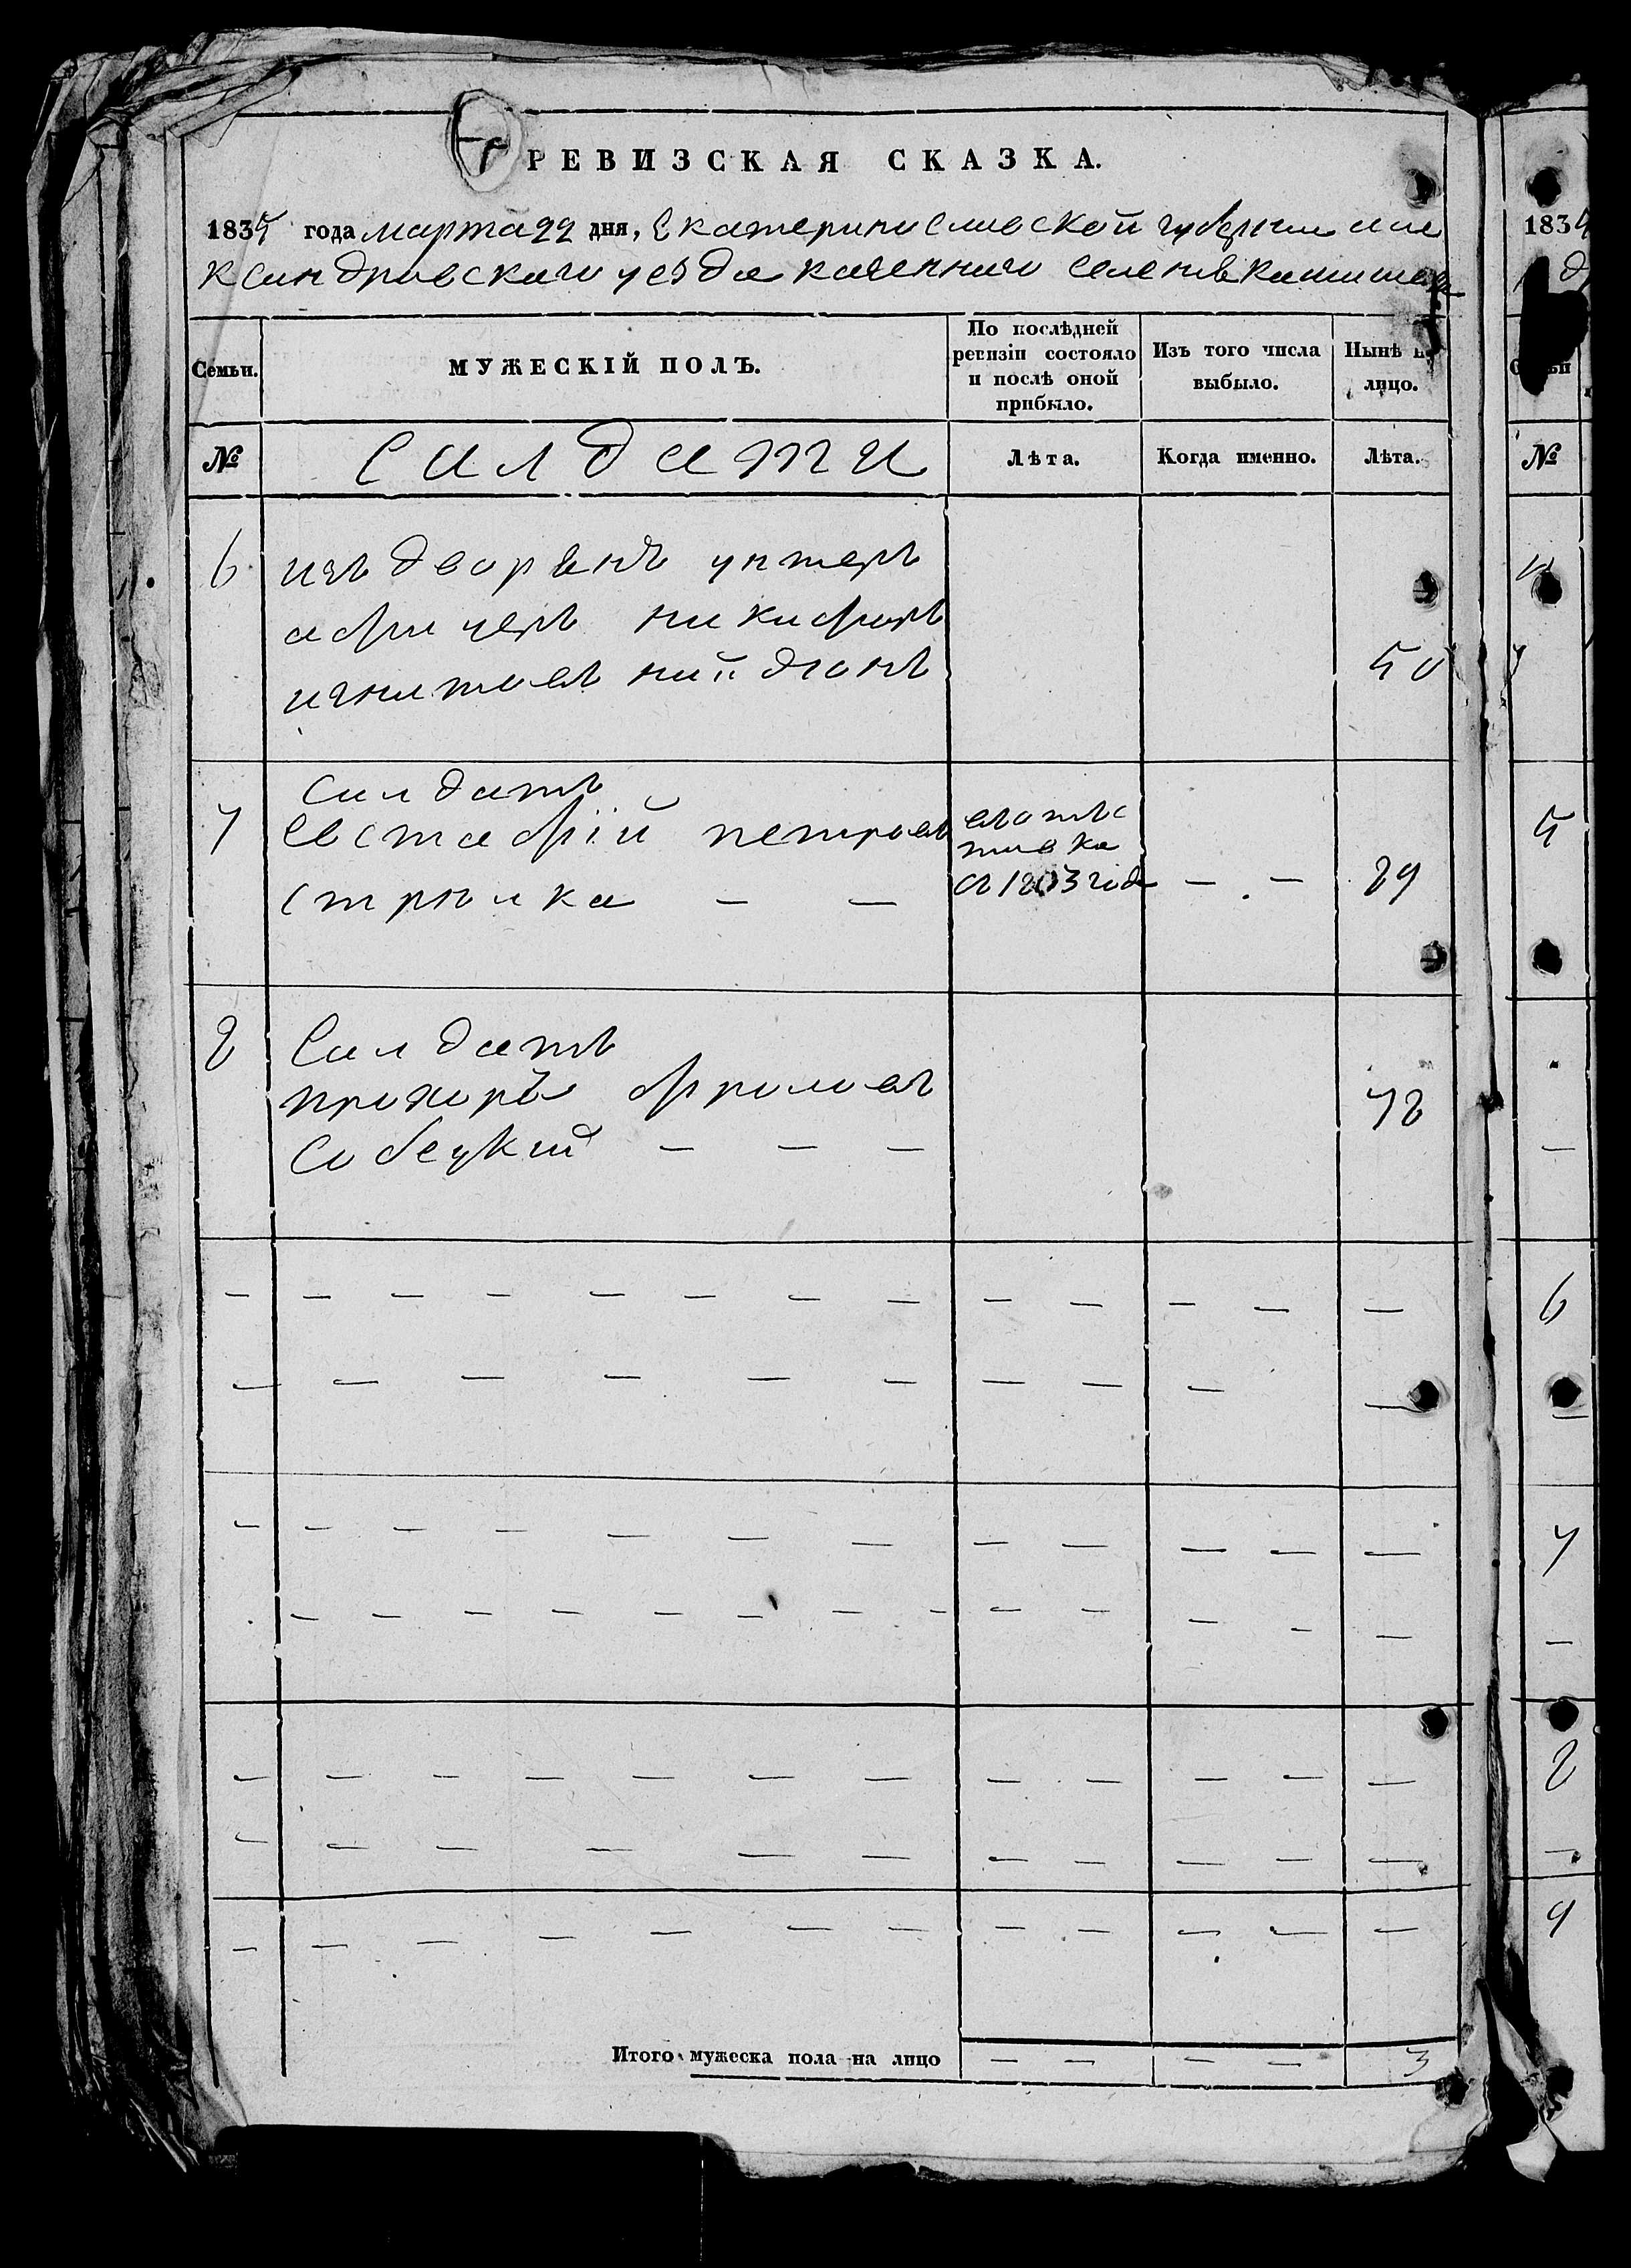 РЕВИЗСКАЯ СКАЗКА.
1835 года марта 22 дня, Екатеринославской губернии але
ксандровского уезда казенного
Семьи.
МУЖЕСКІЙ ПОЛЪ.
По послѣдней ревизіи состояло и послѣ оной прибыло.
Изъ того числа выбыло.
Нынѣ
лицо.
№
Салдати
Лѣта.
Когда именно.
Лѣта.
6
изъ дворянъ унтеръ
афицеръ никифоръ
50
7
Салдатъ
Евстафій петровъ
стрюлка — —
съ 1803 года
— . —
29
8
Салдатъ
прохоръ фроловъ
Собецкий — — —
78
Итого мужеска пола на лицо
— —
— —
3
1835
№
5
6
7
8
9